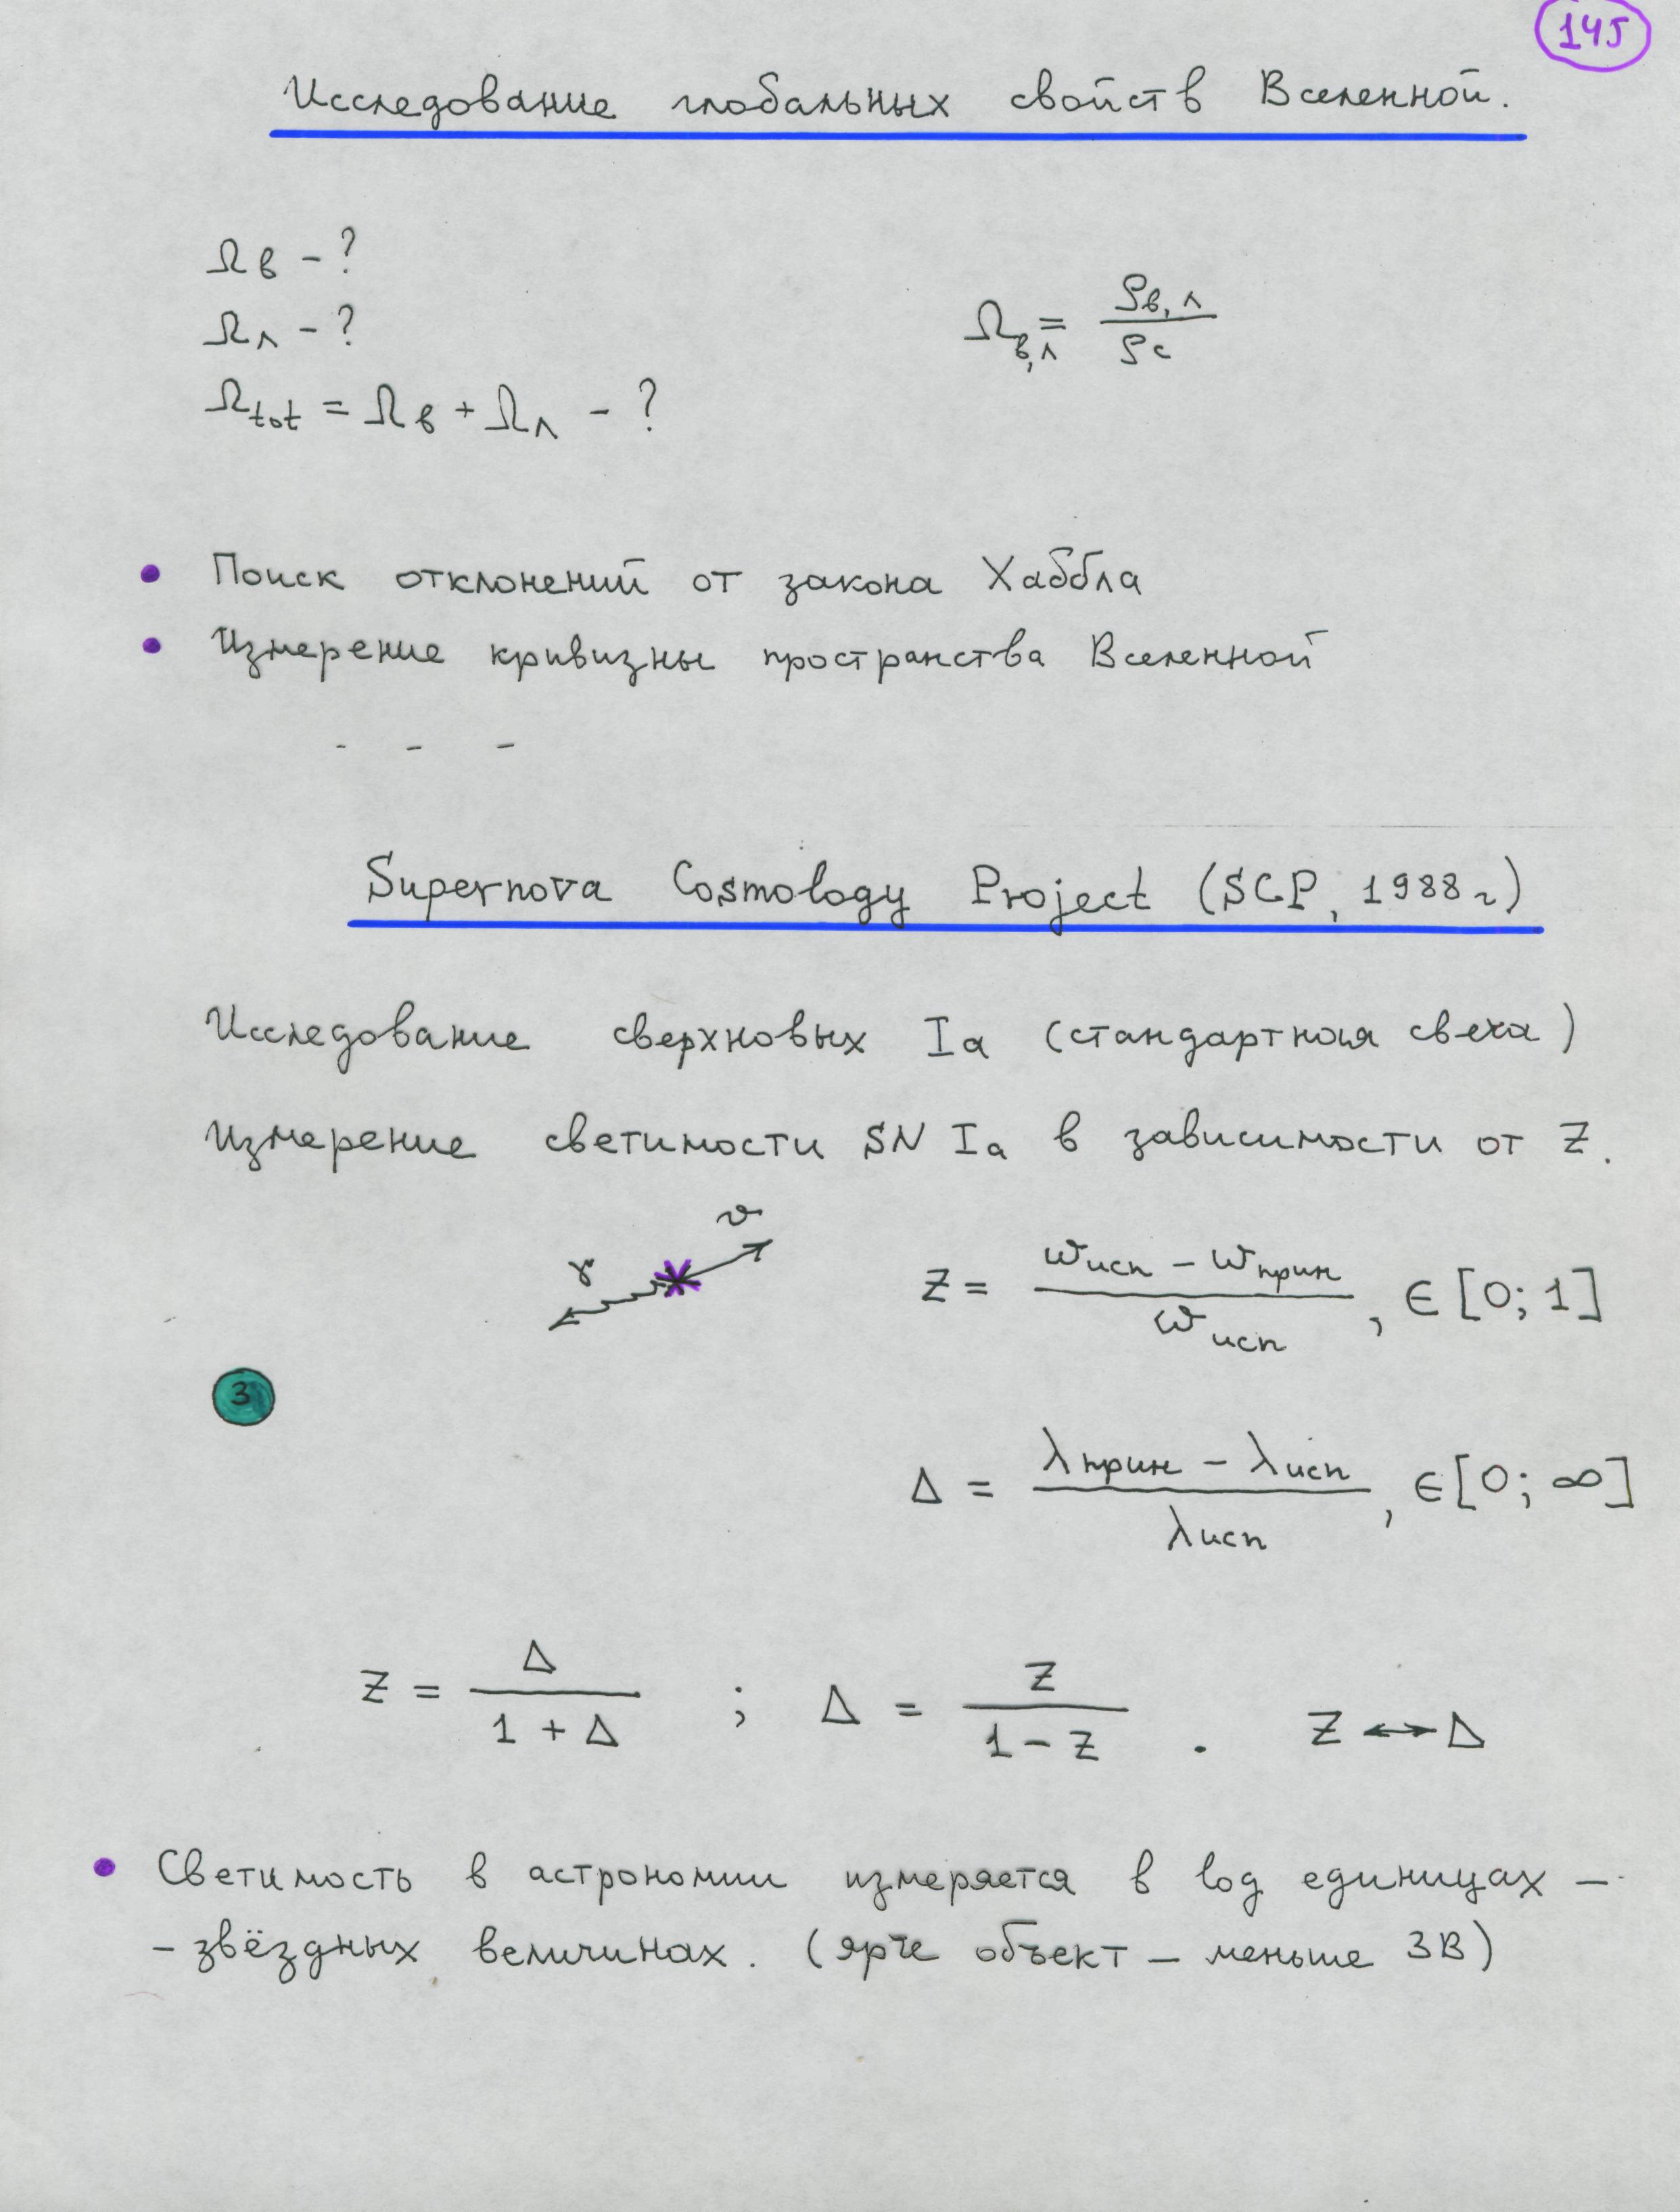 145
Исследование глобальных свойств Вселенной.
Ωв - ?
Ωл - ?
Ωв,л = ρв,л / ρс
Ωtot = Ωв + Ωл - ?
• Поиск отклонений от закона Хаббла
• Измерение кривизны пространства Вселенной
- - -
Supernova Cosmology Project (SCP, 1988г)
Исследование сверхновых Ia (стандартная свеча)
Измерение светимости SN Ia в зависимости от Z.
γ v
Z = (ωисп - ωприн) / ωисп, ∈ [0; 1]
3
Δ = (λприн - λисп) / λисп, ∈ [0; ∞]
Z = Δ / (1 + Δ) ; Δ = Z / (1 - Z) . Z ↔ Δ
• Светимость в астрономии измеряется в log единицах -
- звёздных величинах. (ярче объект - меньше ЗВ)